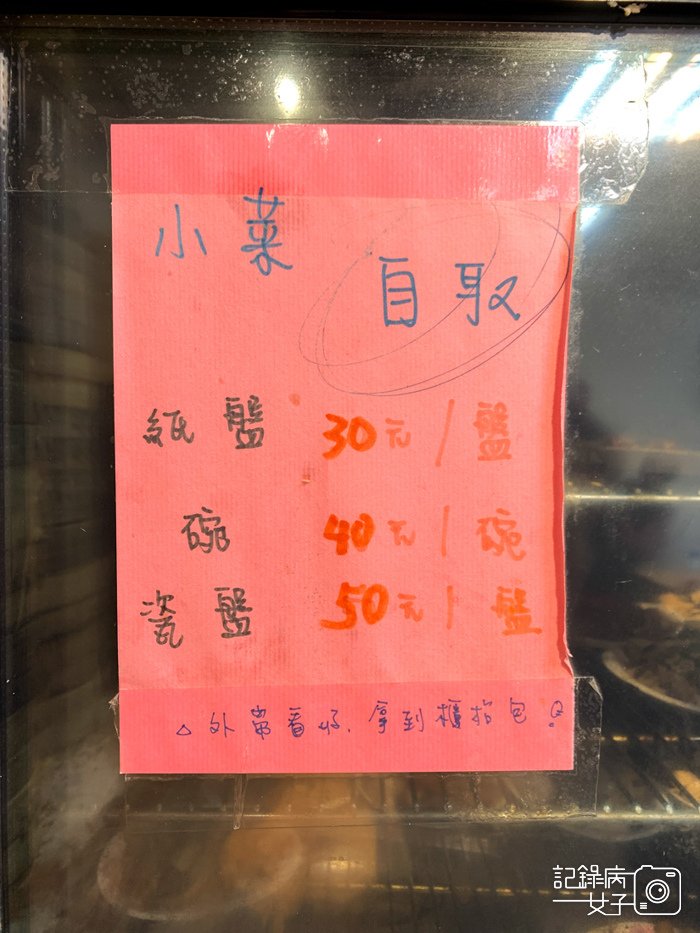 小菜
自取
紙盤 30元/盤
碗 40元/碗
瓷盤 50元/盤
△外帶看好.拿到櫃抬包!
記錄病
女子